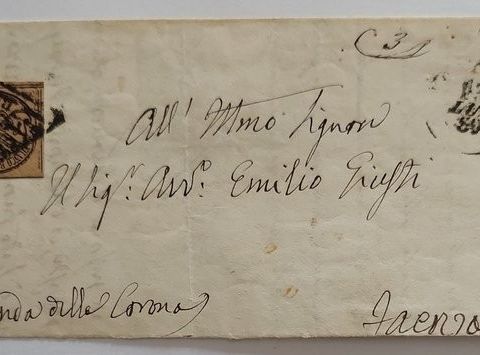 3
LUG
All' Illmo Signore
Il Sigr. Avv. Emilio Giusti
della Corona
Faenza